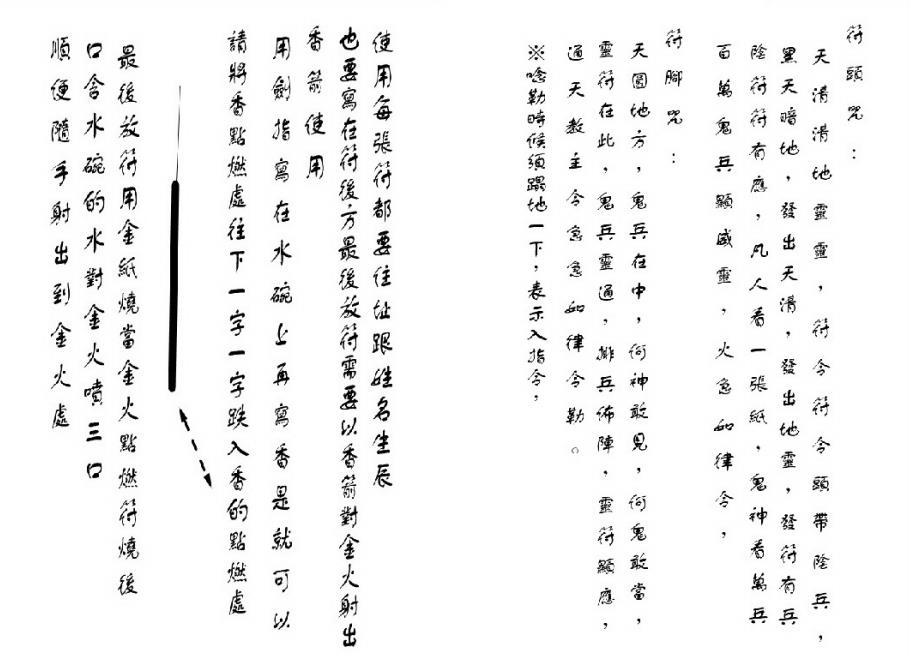 符頭咒：
天清清地靈靈，符令符令頭帶陰兵，
黑天暗地，發出天清，發出地靈，發符有兵
陰符符有應，凡人看一張紙，鬼神看萬兵
百萬鬼兵顯威靈，火急如律令，
符腳咒：
天圓地方，鬼兵在中，何神敢見，何鬼敢當，
靈符在此，鬼兵靈通，排兵佈陣，靈符顯應，
通天教主令急急如律令勒。
※唸勒時候須蹋地一下，表示入指令，
使用每張符都要住址跟姓名生辰
也要寫在符後方最後放符需要以香箭對金火射出
香箭使用
用劍指寫在水碗上再寫香是就可以
請將香點燃處往下一字一字跌入香的點燃處
最後放符用金紙燒當金火點燃符燒後
口含水碗的水對金火噴三口
順便隨手射出到金火處